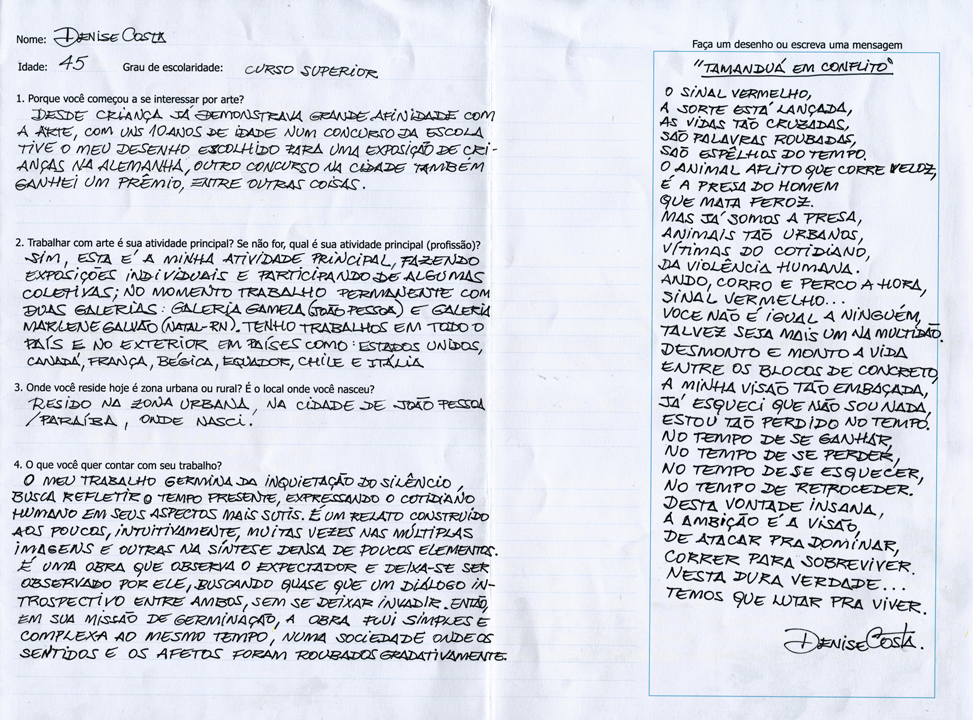 Nome: Denise Costa
Idade: 45 Grau de escolaridade: CURSO SUPERIOR
1. Porque você começou a se interessar por arte?
DESDE CRIANÇA JÁ DEMONSTRAVA GRANDE AFINIDADE COM
A ARTE, COM UNS 10 ANOS DE IDADE NUM CONCURSO DA ESCOLA
TIVE O MEU DESENHO ESCOLHIDO PARA UMA EXPOSIÇÃO DE CRI-
ANÇAS NA ALEMANHA, OUTRO CONCURSO NA CIDADE TAMBÉM
GANHEI UM PRÊMIO, ENTRE OUTRAS COISAS.
2. Trabalhar com arte é sua atividade principal? Se não for, qual é sua atividade principal (profissão)?
SIM, ESTA É A MINHA ATIVIDADE PRINCIPAL, FAZENDO
EXPOSIÇÕES INDIVIDUAIS E PARTICIPANDO DE ALGUMAS
COLETIVAS; NO MOMENTO TRABALHO PERMANENTE COM
DUAS GALERIAS: GALERIA GAMELA (JOÃO PESSOA) E GALERIA
MARLENE GALVÃO (NATAL-RN). TENHO TRABALHOS EM TODO O
PAÍS E NO EXTERIOR EM PAÍSES COMO: ESTADOS UNIDOS,
CANADÁ, FRANÇA, BÉGICA, EQUADOR, CHILE E ITÁLIA
3. Onde você reside hoje é zona urbana ou rural? É o local onde você nasceu?
RESIDO NA ZONA URBANA, NA CIDADE DE JOÃO PESSOA
/PARAÍBA, ONDE NASCI.
4. O que você quer contar com seu trabalho?
O MEU TRABALHO GERMINA DA INQUIETAÇÃO DO SILÊNCIO,
BUSCA REFLETIR O TEMPO PRESENTE, EXPRESSANDO O COTIDIANO
HUMANO EM SEUS ASPECTOS MAIS SUTIS. É UM RELATO CONSTRUÍDO
AOS POUCOS, INTUITIVAMENTE, MUITAS VEZES NAS MÚLTIPLAS
IMAGENS E OUTRAS NA SÍNTESE DENSA DE POUCOS ELEMENTOS.
É UMA OBRA QUE OBSERVA O EXPECTADOR E DEIXA-SE SER
OBSERVADO POR ELE, BUSCANDO QUASE QUE UM DIÁLOGO IN-
TROSPECTIVO ENTRE AMBOS, SEM SE DEIXAR INVADIR. ENTÃO,
EM SUA MISSÃO DE GERMINAÇÃO, A OBRA FLUI SIMPLES E
COMPLEXA AO MESMO TEMPO, NUMA SOCIEDADE ONDE OS
SENTIDOS E OS AFETOS FORAM ROUBADOS GRADATIVAMENTE.
Faça um desenho ou escreva uma mensagem
"TAMANDUÁ EM CONFLITO"
O SINAL VERMELHO,
A SORTE ESTÁ LANÇADA,
AS VIDAS TÃO CRUZADAS,
SÃO PALAVRAS ROUBADAS,
SÃO ESPÊLHOS DO TEMPO.
O ANIMAL AFLITO QUE CORRE VELOZ,
É A PRESA DO HOMEM
QUE MATA FEROZ.
MAS JÁ SOMOS A PRESA,
ANIMAIS TÃO URBANOS,
VÍTIMAS DO COTIDIANO,
DA VIOLÊNCIA HUMANA.
ANDO, CORRO E PERCO A HORA,
SINAL VERMELHO...
VOCE NÃO É IGUAL A NINGUÉM,
TALVEZ SEJA MAIS UM NA MULTIDÃO.
DESMONTO E MONTO A VIDA
ENTRE OS BLOCOS DE CONCRETO,
A MINHA VISÃO TÃO EMBAÇADA,
JÁ ESQUECI QUE NÃO SOU NADA,
ESTOU TÃO PERDIDO NO TEMPO.
NO TEMPO DE SE GANHAR,
NO TEMPO DE SE PERDER,
NO TEMPO DE SE ESQUECER,
NO TEMPO DE RETROCEDER.
DESTA VONTADE INSANA,
A AMBIÇÃO É A VISÃO,
DE ATACAR PRA DOMINAR,
CORRER PARA SOBREVIVER.
NESTA DURA VERDADE...
TEMOS QUE LUTAR PRA VIVER.
Denise Costa.